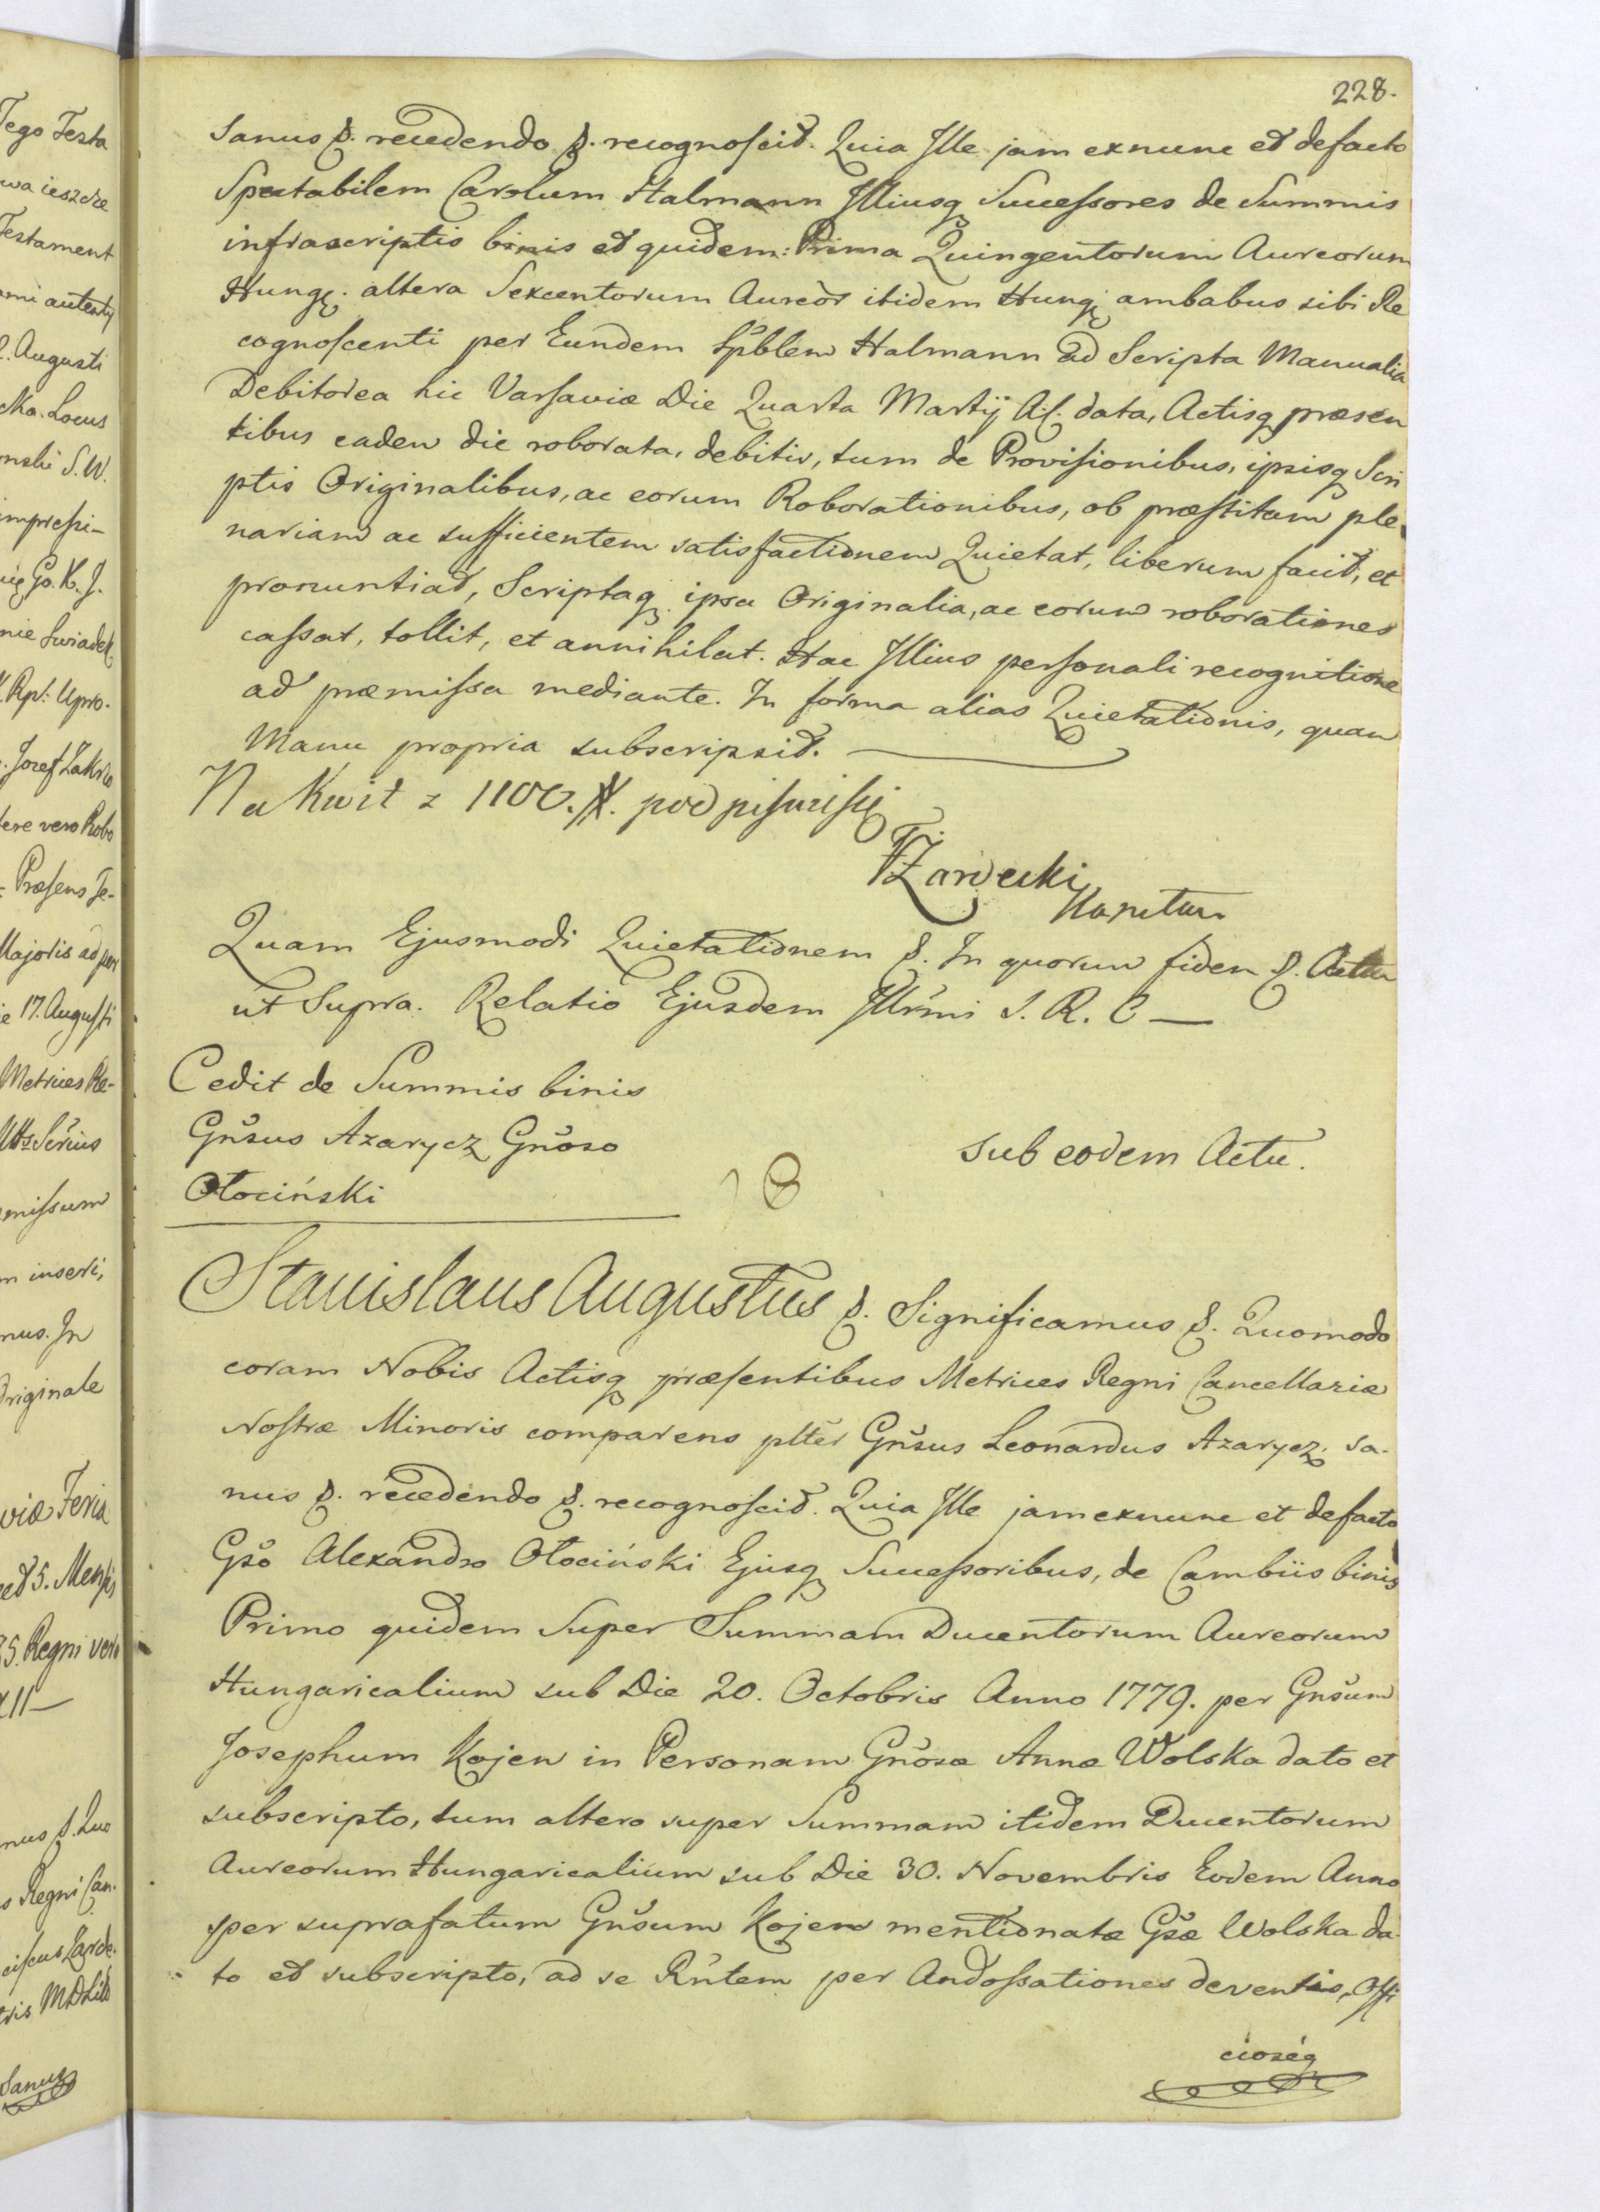 228.
Sanus &. recedendo &. recognoscit. Quia Ille jam exnunc et defacto
Spectabilem Carolum Halmann Illiusq Successores de Summis
infrascriptis binis et quidem: Prima Quingentorum Aureorum
Hungq. altera Sexcentorum Aureor itidem Hungq ambabus sibi Re
cognoscenti per Eundem Spblem Halmann ad Scripta Manualia
Debitorea hic Varsaviæ Die Quarta Martij A.C. data, Actisq præsen
tibus eadem die roborata, debitis, tum de Provisionibus, ipsisq Scri
ptis Originalibus, ac eorum Roborationibus, ob præstitam ple
nariam ac sufficientem satisfactionem Quietat, liberum facit, et
pronuntiat, Scriptaq ipsa Originalia, ac eorum roborationes
cassat, tollit, et annihilat. Hac Illius personali recognitione
ad præmissa mediante. In forma alias Quietationis, quam
Manu propria subscripsit.
Na Kwit z 1100. #. podpisuię się
FZardecki
Quam Ejusmodi Quietationem &. In quorum fidem &. Actum
ut Supra. Relatio Ejusdem Illrmi S. R. C
Cedit de Summis binis
Gnsus Azarycz Gnoso
Otociński
sub eodem Actu.
Stanislaus Augustus &. Significamus &. Quomodo
coram Nobis Actisq præsentibus Metrices Regni Cancellariæ
Nostræ Minoris comparens plter Gnsus Leonardus Azarycz. sa-
nus &. recedendo &. recognoscit. Quia Ille jam exnunc et defacto
Gso Alexandro Otociński Ejusq Successoribus, de Cambiis binis
Primo quidem Super Summam Ducentorum Aureorum
Hungaricalium sub Die 20. Octobris Anno 1779. per Gnsum
Josephum Kojen in Personam Gnosæ Annæ Wolska dato et
subscripto, tum altero super Summam itidem Ducentorum
Aureorum Hungaricalium sub Die 30. Novembris Eodem Anno
per suprafatum Gnsum Kojen mentionatæ Gsæ Wolska da-
to et subscripto, ad se Rntem per Andossationes deventis, Offi
cioség